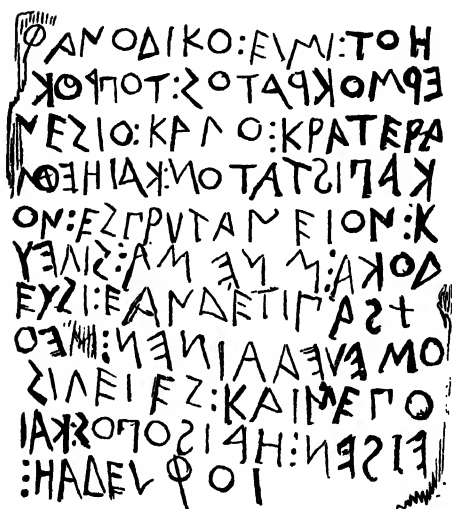 ΦΑΝΟΔΙΚΟ:ΕΙΜΙ:ΤΟΗ
ΕΡΜΟΚΡΑΤΟΣ:ΤΟΠΡΟΚ
ΝΕΣΙΟ:ΚΑΓΟ:ΚΡΑΤΕΡΑ
ΚΑΠΙΣΤΑΤΟΝ:ΚΑΙΗΕΘΜ
ΟΝ:ΕΣΠΡΥΤΑΝΕΙΟΝ:Κ
ΔΟΚΑ:ΜΝΕΜΑ:ΣΙΓΕΥ
ΕΥΣΙ:ΕΑΝΔΕΤΙΠΑΣΧ
ΟΜΕΛΕΔΑΙΝΕΝ:ΜΕΟ
ΣΙΓΕΙΕΣ:ΚΑΙΜΕΠΟ
ΕΙΣΕΝ:ΗΑΙΣΟΠΟΣ:ΚΑΙ
:ΗΑΔΕΛΦΟΙ